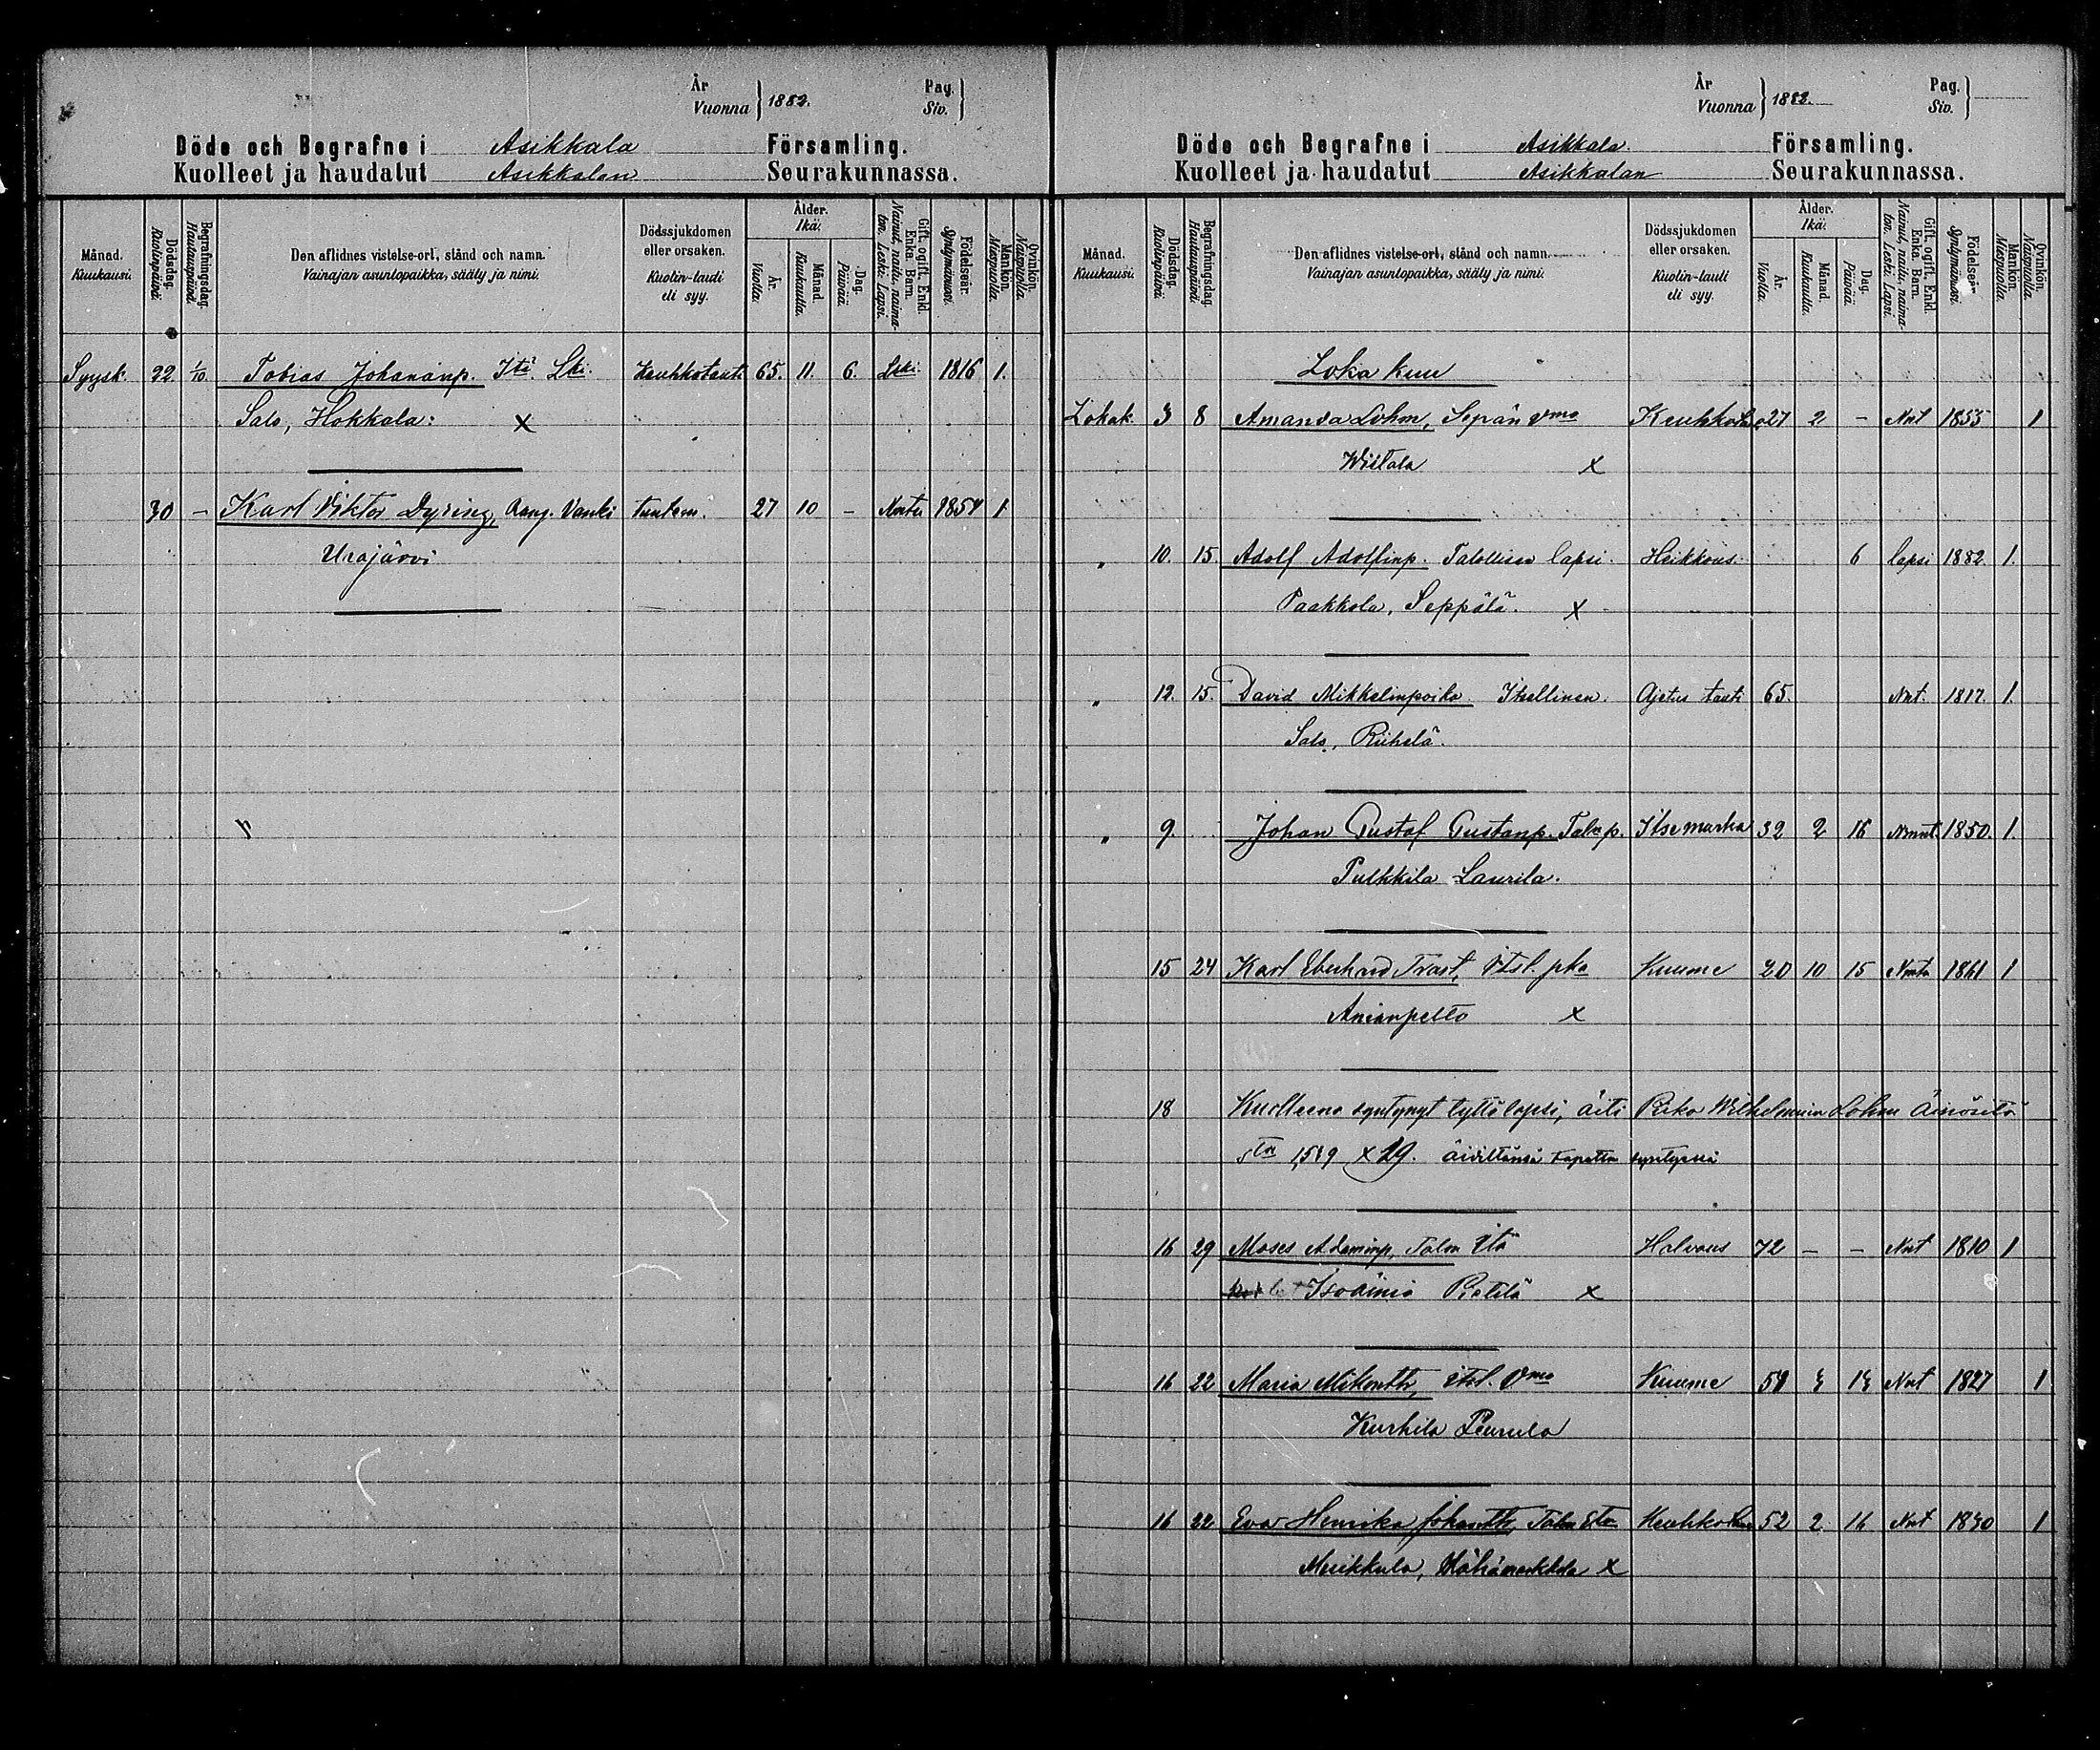 År
Vuonna } 1882.
Pag.
Siv. }
Döde och Begrafne i Asikkala Församling.
Kuolleet ja haudatut Asikkalan Seurakunnassa.
Månad.
Kuukausi.
Dödsdag.
Kuolinpäivä.
Begrafningsdag.
Hautauspäivä.
Den aflidnes vistelse-ort, stånd och namn.
Vainajan asuntopaikka, sääty ja nimi.
Dödssjukdomen
eller orsaken.
Kuolin-tauti
eli syy.
Ålder.
Ikä.
År.
Vuotta.
Månad.
Kuukautta.
Dag.
Päivää.
Gift, ogift. Enkl.
Enka. Barn.
Nainut, naitu, naima-
ton. Leski. Lapsi.
Födelseår.
Syntymävuosi.
Mankön.
Miespuolia.
Qvinkön.
Naispuolia.
Syysk. 22. 1/10 Tobias Johananp. Itä. Lki. Keuhkotauti 65. 11. 6. Lski. 1816 1.
Salo, Hokkala: x
30 – Karl Viktor Dyring, Rang. Vanki tuntem. 27 10 – Nmtu 1854 1
Urajärvi
År
Vuonna } 1882.
Pag.
Siv. }
Döde och Begrafne i Asikkala Församling.
Kuolleet ja haudatut Asikkalan Seurakunnassa.
Månad.
Kuukausi.
Dödsdag.
Kuolinpäivä
Begrafningsdag
Hautauspäivä
Den aflidnes vistelse-ort, stånd och namn.
Vainajan asuntopaikka, sääty ja nimi.
Dödssjukdomen
eller orsaken.
Kuolin-tauti
eli syy.
Ålder.
Ikä.
År.
Vuotta.
Månad.
Kuukautta.
Dag.
Päivää.
Gift, ogift. Enkl.
Enka. Barn.
Nainut, naitu, naima-
ton. Leski. Lapsi.
Födelseår
Syntymävuosi.
Mankön.
Miespuolia.
Qvinkön.
Naispuolia.
Loka kuu
Lokak. 3 8 Amanda Lohm, Sepän vmo 27 2 – Nnt 1855 1
Wistala x
" 10. 15. Adolf Adolfinp. Talollisen lapsi. Heikkous. 6 lapsi 1882. 1.
Paakkola, Seppälä. x
" 12. 15. David Mikkelinpoika Itsellinen. Ajetus tauti 65. Nnt. 1817. 1.
Salo, Riihelä.
" 9. Johan Gustaf Gustanp. Talnp. Itsemurha 32 2 16 Nmnt. 1850. 1.
Pulkkila Laurila.
15 24 Karl Eberhard Trast, Itsl. pka Kuume 20 10 15 Nmtn 1861 1
Anianpelto x
18 Kuolleena syntynyt tyttölapsi, äiti Pika Wilhelmiina Lohm Äiniöstä
29. äidillänsä tapettu syntyessä
16 29 Moses Adaminp, Talon Itä Halvaus 72 – – Nnt 1810 1
Isoäiniö Pietilä x
16 22 Maria Mikontr, itsl. Vmo Kuume 54 3 13 Nnt 1827 1
Kurhila Peurula
16 22 Eva Henrika Johantr, Talon Eta 52 2 16 Nnt 1830 1
Muikkula, x